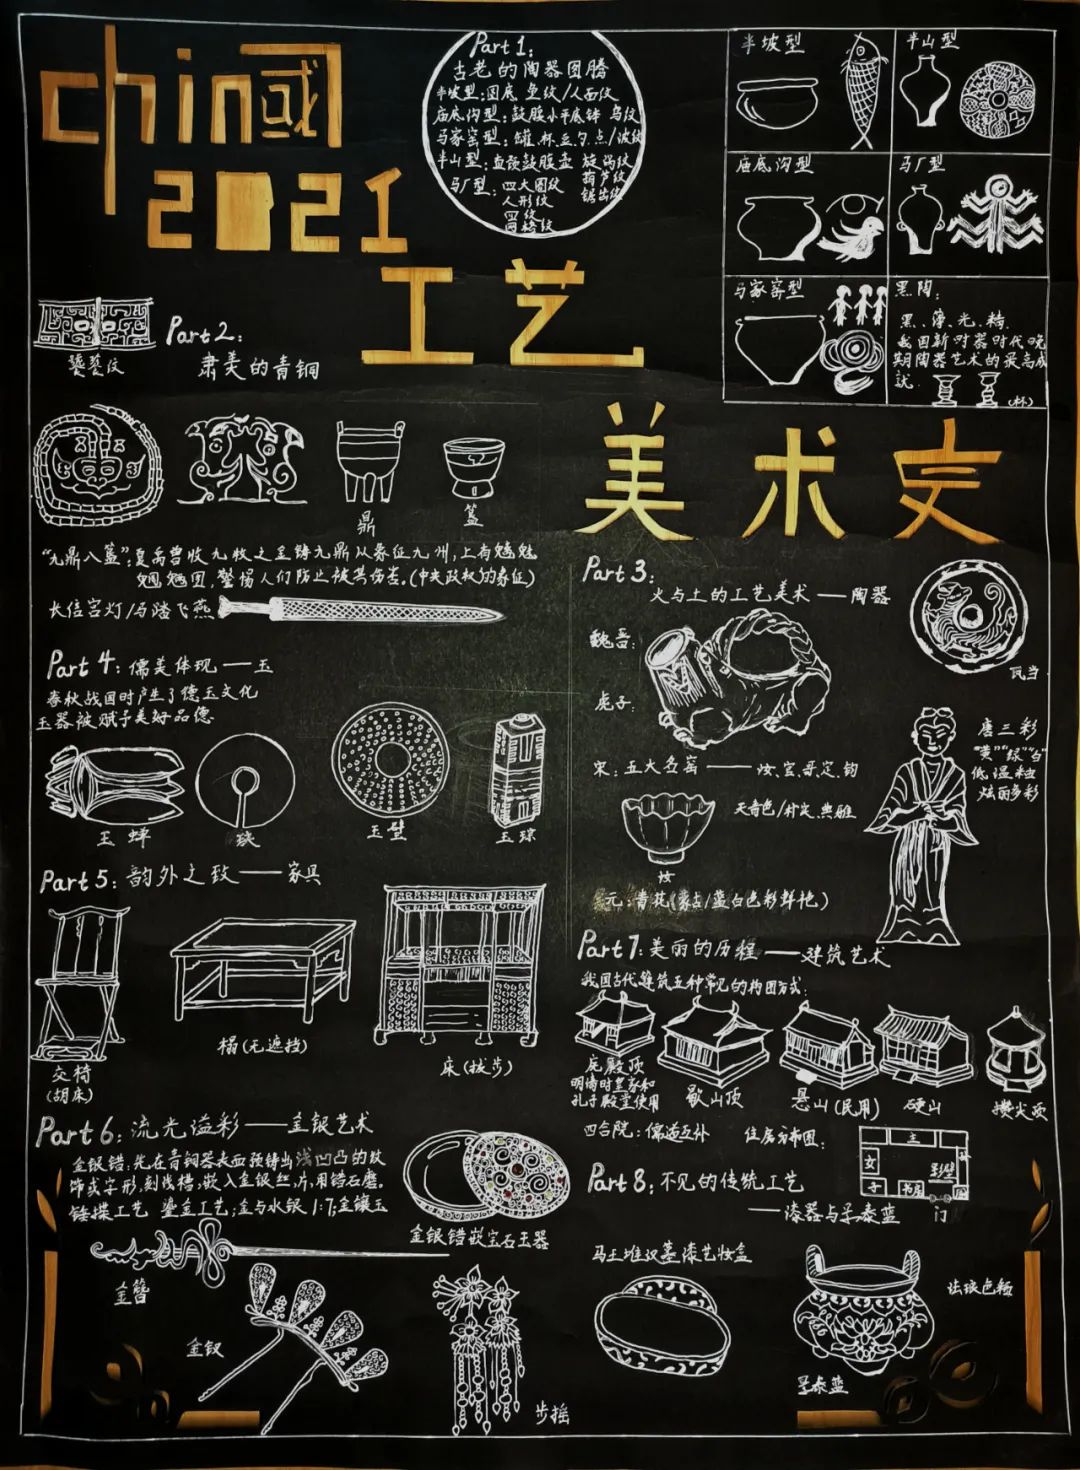 chin國
2021
工艺
美术史
Part 1:
古老的陶器图腾
半坡型:圆底 鱼纹/人面纹
庙底沟型:鼓腹小平底钵 鸟纹
马家窑型:罐.杯.豆.勺.点/波纹
半山型:直颈鼓腹壶 旋涡纹
葫芦纹
锯齿纹
马厂型:四大圆纹
人形纹
网格纹
半坡型
半山型
庙底沟型
马厂型
马家窑型
黑陶:
黑、薄、光、精.
我国新时器时代晚
期陶器艺术的最高成
就.
(杯)
Part 2:
肃美的青铜
饕餮纹
鼎
簋
"九鼎八簋":夏禹曾收九牧之金铸九鼎从象征九州,上有魑魅
魍魉图,警惕人们防止被其伤害.(中央政权的象征)
长信宫灯/马踏飞燕
Part 3:
火与土的工艺美术——陶器
魏晋:
虎子:
瓦当
宋:五大名窑——汝、官、哥、定、钧
天青色/朴实、典雅
汝
唐三彩
"黄""绿""白
低温釉
炫丽多彩
元:青花(蒙古/蓝白色彩鲜艳)
Part 4:儒美体现——玉
春秋战国时产生了德玉文化
玉器被赋予美好品德.
玉蝉
玦
玉璧
玉琮
Part 5:韵外之致——家具
交椅
(胡床)
榻(无遮挡)
床(拔步)
Part 6:流光溢彩——金银艺术
金银错:先在青铜器表面预铸出浅凹凸的纹
饰或字形,刻浅槽,嵌入金银丝,片,用错石磨.
锤揲工艺 鎏金工艺:金与水银1:7;金镶玉
金银错嵌宝石玉器
金簪
金钗
步摇
Part 7:美丽的历程——建筑艺术
我国古代建筑五种常见的构图方式:
庑殿顶
明清时皇家和
孔子殿堂使用
歇山顶
悬山(民用)
硬山
攒尖顶
四合院:儒道互补
住房分布图:
主
女
子
书房
影壁
门
Part 8:不见的传统工艺
——漆器与景泰蓝
马王堆汉墓漆艺妆盒
珐琅色釉
景泰蓝